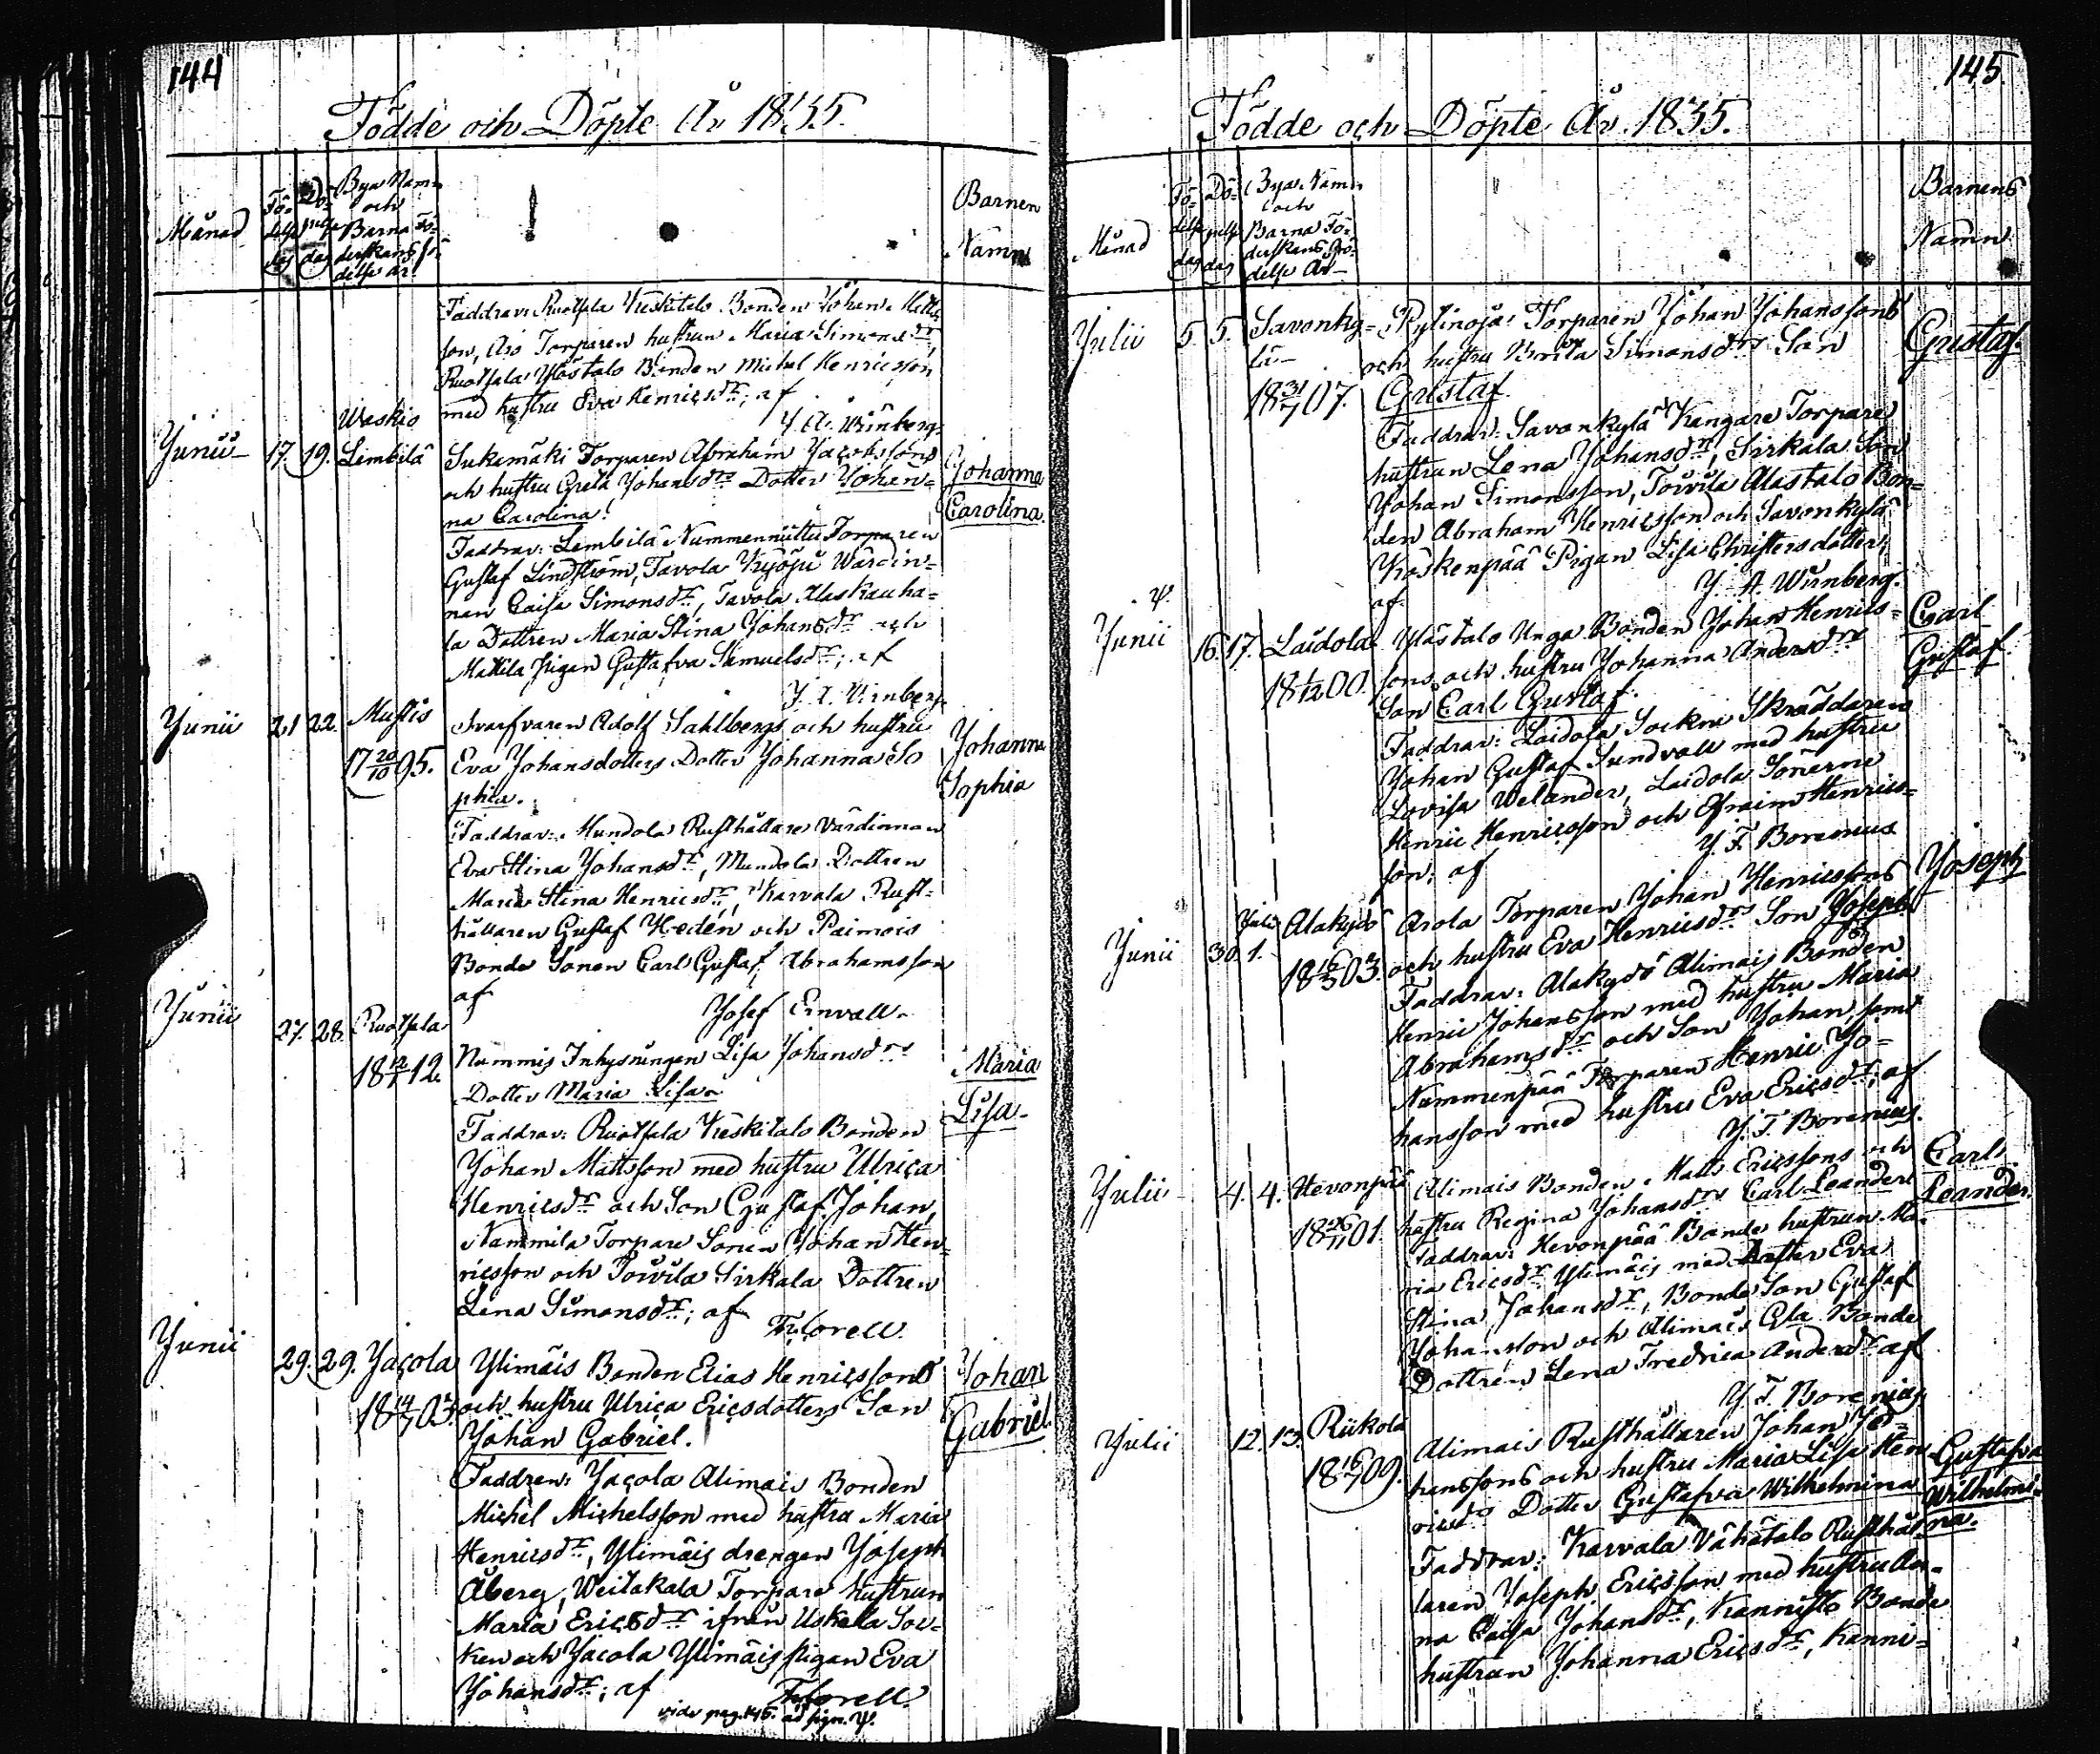 144
Födde och Döpte År 1835.
Månad
Fö-
delse
dag
Dö-
pelse
dag
Bya Namn
och
Barna Fö-
derskans Fö-
delse år
Barnen
Namn
Faddrar: Ruotsala Keskitalo Bonden Johan Matts
son, Torparen hustrun Maria Simonsdr,
Ruotsala Ylöstalo Bonden Michel Henricsson
med hustru Eva Henricsdr; af
J. A. Winberg.
Weskio
Junii 17. 19. Lembilä Sukemäki Torparen Abraham Jacobssons Johanna
och hustru Greta Johansdrs Dotter Johan- Carolina.
na Carolina.
Faddrar: Lembilä Nummennuttu Torparen
Gustaf Lindström, Tavola Kyöju Wärdin-
nan Caisa Simonsdr, Tavola Alaskauha-
la Dottren Maria Stina Johansdr och
Mattila Pigan Gustafva Samuelsdr; af
J. A. Winberg.
Junii 21 22. Mustis Svarfvaren Adolf Sahlbergs och hustru Johanna
17 20/10 95. Eva Johansdotters Dotter Johanna So Sophia
phia.
Faddrar: Mundola Rusthållare Värdinnan
Eva Stina Johansdr, Mundola Dottren
Maria Stina Henricsdr, Karvala Rust-
hållaren Gustaf Hedén och Paimois
Bonde Sonen Carl Gustaf Abrahamsson
af
Josef Ervall.
Junii 27. 28. Ruotsala
18 12/1 12. Nummis Inhysningen Lisa Johansdrs Maria
Dotter Maria Lisa. Lisa.
Faddrar: Ruotsala Keskitalo Bonden
Johan Mattsson med hustru Ulrica
Henricsdr och Son Gustaf Johan,
Nammila Torpare Sonen Johan Hen-
ricsson och Toivila Sirkala Dottren
Lena Simonsdr; af
Florell.
Junii 29. 29. Jacola Ylimäis Bonden Elias Henricssons Johan
18 14/7 03. och hustru Ulrica Ericsdotters Son Gabriel.
Johan Gabriel.
Faddren: Jacola Alimais Bonden
Michel Michelsson med hustru Maria
Henricsdr, Ylimäis drengen Joseph
Åberg, Weitakala Torpare hustrun
Maria Ericsdr ifrån Uskela Soc-
ken och Jacola Ylimäis Pigan Eva
Johansdr; af
Florell.
vide pag. 145. ad sign. Ψ.
145.
Födde och Döpte År 1835.
Månad
Fö-
delse
dag
Dö-
pelse
dag
Bya Namn
och
Barna Fö-
derskans Fö-
delse År
Barnens
Namn
Julii 5. 5. Savonky- Pytinoja Torparen Johan Johanssons Gustaf.
lä och hustru Brita Simonsdrs Son
18 31/7 07. Gustaf.
Faddrar: Savonkylä Kangare Torpare
hustrun Lena Johansdr, Sirkala Son
Johan Simonsson, Toivila Alastalo Bon-
den Abraham Henricsson och Savonkylä
Koskenpää Pigan Lisa Christersdotter;
af J. A. Winberg.
Ψ.
Junii 16. 17. Laidola Ylästalo Unga Bonden Johan Henrics- Carl
18 1/12 00. sons och hustru Johanna Andersdrs Gustaf.
Son Carl Gustaf.
Faddrar: Laidola Sockne Skräddaren
Johan Gustaf Sundvall med hustru
Lovisa Welander, Laidola Sönerne
Henric Henricsson och Efraim Henrics-
son; af J. F. Borenius
Junii 30. Julii 1. Alakyö Arola Torparen Johan Henricssons Joseph
18 16/3 03. och hustru Eva Henricsdrs Son Joseph
Faddrar: Alakyö Alimais Bonden
Henric Johansson med hustru Maria
Abrahamsdr och Son Johan, samt
Nummenpää Torparen Henric Jo-
hansson med hustru Eva Ericsdr; af
J. F. Borenius.
Julii 4. 4. Hevonpää Alimais Bonden Matts Ericssons och Carl
18 26/11 01. hustru Regina Johansdrs Carl Leander Leander.
Faddrar: Hevonpää Bonde hustrun Ma-
ria Ericsdr Ylimäis med dotter Eva
Stina Johansdr, Bonde Son Gustaf
Johansson och Alimais Bonde
Dottren Lena Fredrica Andersdr af
J. F. Borenius
Julii 12. 13. Riikola Alimais Rusthållaren Johan Jo- Gustafva
18 16/7 09. hanssons och hustru Maria Lisa Hen Wilhelmi-
ricsdrs Dotter Gustafva Wilhelmina na.
Faddrar: Karvala Vähätalo Rusthål
laren Joseph Ericsson med hustru An-
na Caisa Johansdr, Kannisto Bonde
hustrun Johanna Ericsdr, Kanni-